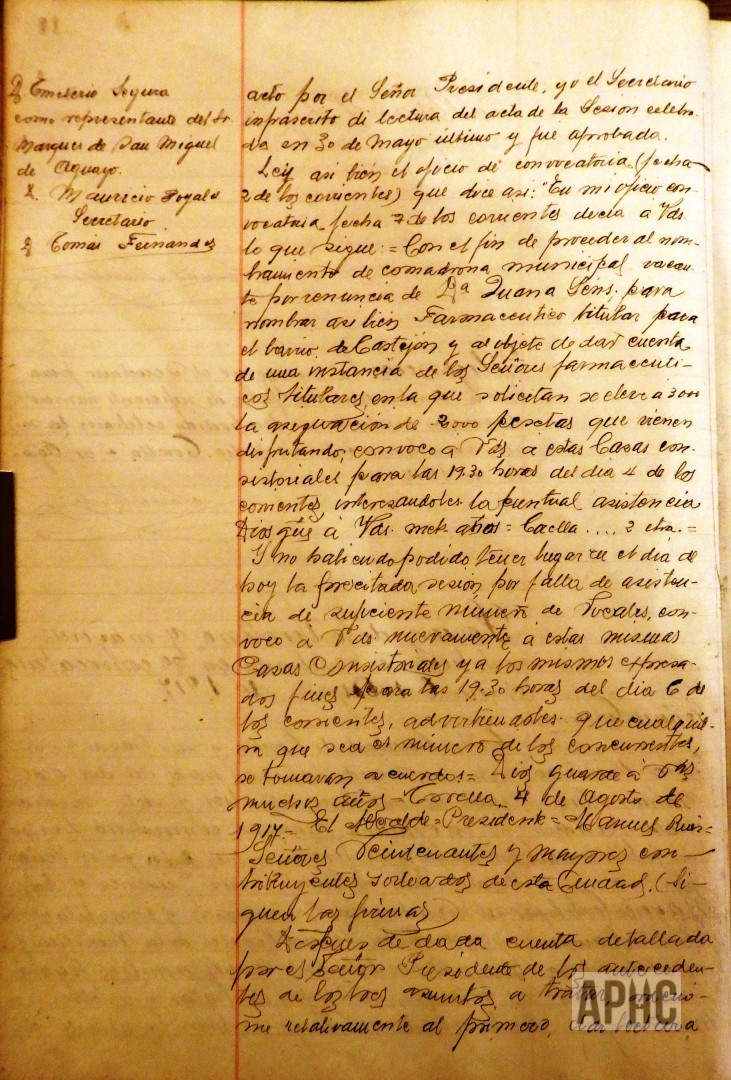 D. Emeterio Segura
como representante del Sr.
Marques de San Miguel
de Aguayo.
D. Mauricio
Secretario
D. Tomas Fernandez
acto por el Señor Presidente, yo el Secretario
infrascrito di lectura del acta de la Sesion celebra-
da en 30 de Mayo último y fue aprobada.
Leí asi bien el oficio de convocatoria (fecha
2 de los corrientes) que dice asi: "En mi oficio con-
vocatoria fecha 2 de los corrientes decia á Vds.
lo que sigue: = Con el fin de proceder al nom-
bramiento de comadrona municipal vacan-
te por renuncia de Dª Juana Sens, para
nombrar asi bien Farmaceutico titular para
el barrio de Castejón y al objeto de dar cuenta
de una instancia de los Señores farmaceuti-
cos titulares, en la que solicitan se eleve á 3000
la asignación de 2000 pesetas que vienen
disfrutando, convoco á Vds. a estas Casas con-
sistoriales para las 19.30 horas del dia 4 de los
corrientes, interesandoles la puntual asistencia
Dios güe á Vds. mchs años = Corella .... 2 etra. =
Y no habiendo podido tener lugar en el dia de
hoy la precitada sesion por falta de asisten-
cia de suficiente número de Vocales, con-
voco á Vds nuevamente á estas mismas
Casas Consistoriales y a los mismos expresa-
dos fines para las 19.30 horas del dia 6 de
los corrientes, advirtiendoles que cualquie-
ra que sea el número de los concurrentes,
se tomaran acuerdos = Dios guarde á Vds
muchos años = Corella, 4 de Agosto de
1917.- El Alcalde = Presidente = Manuel Ruiz=
Señores Veintenantes y mayores con-
tribuyentes sorteados de esta Ciudad. (Si-
guen las firmas)
Despues de dada cuenta detallada
por el Señor Presidente de los anteceden-
tes de los tres asuntos a tratar,
me relativamente al primero,
APHC